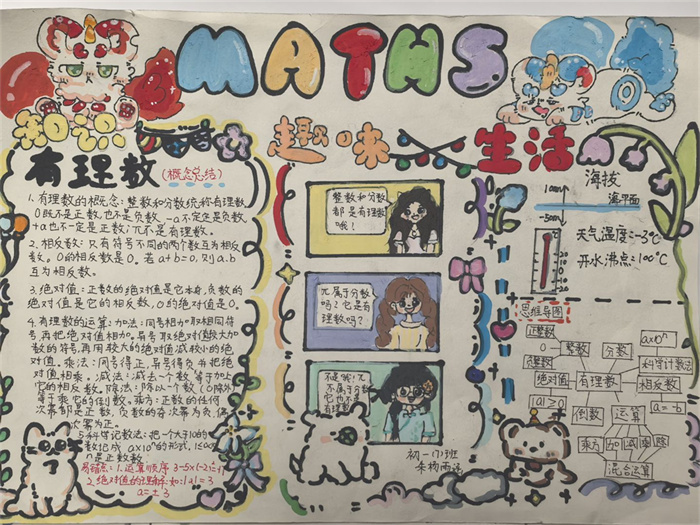 MATHS.
知识
有理数(概念总结)
1.有理数的概念:整数和分数统称有理数
0既不是正数,也不是负数,-a不一定是负数
+a也不一定是正数;兀不是有理数。
2.相反数:只有符号不同的两个数互为相反
数。0的相反数是0。若a+b=0,则a.b
互为相反数。
3.绝对值:正数的绝对值是它本身,负数的
绝对值是它的相反数,0的绝对值是0。
4.有理数的运算:加法:同号相加取相同符
号,再把绝对值相加。异号取绝对值较大加
数的符号,再用较大的绝对值减较小的绝
对值。乘法:同号得正,异号得负并把绝
对值相乘。减法:减去一个数等于加上
它的相反数。除法:除以一个数(0除外)
等于乘它的倒数。乘方:正数的任何
次幂都是正数,负数的奇次幂为负,偶
次幂为正。
5.科学记数法:把一个大于10的
数记成a×10ⁿ的形式,
n是正整数
易错点:1.运算顺序
2.绝对值的理解:如:|a|=3
a=±3
趣味
整数和分数
都是有理数
哦!
兀属于分数
吗?它是有
理数吗?
不是哦!兀
不属于分数
它也不是
有理数
初一(7)班
生活
海拔
100m
海平面
-500m
天气温度:-3℃
开水沸点:100℃
20
10
0
10
20
思维导图
正整数
0
负整数
整数
分数
a×10ⁿ
科学计数法
绝对值
有理数
相反数
|a|≥0
倒数
运算
a=-b
乘方
加
减
乘
除
混合运算